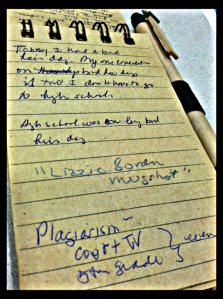 Today I had a bad
hair day. My one consolation
on bad hair days
is that I don't have to go
to high school.
High school was one long bad
hair day
"Lizzie Borden
mugshot"
Plagiarism -
Court TV
5th grade